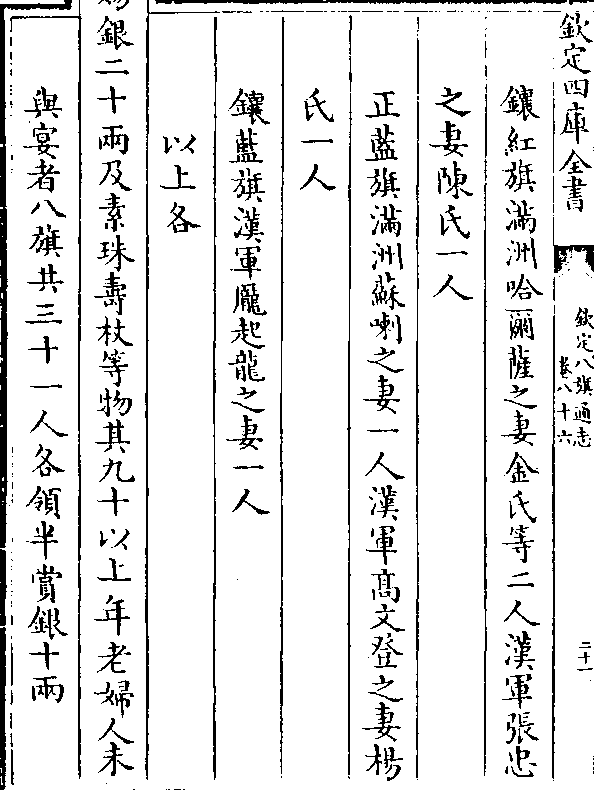 欽定四庫全書
欽定八旗通志
卷八十六
二十一
鑲紅旗滿洲哈爾薩之妻金氏等二人漢軍張忠
之妻陳氏一人
正藍旗滿洲蘇喇之妻一人漢軍高文登之妻楊
氏一人
鑲藍旗漢軍龎起龍之妻一人
以上各
賜銀二十兩及素珠壽杖等物其九十以上年老婦人未
與宴者八旗共三十一人各領半賞銀十兩